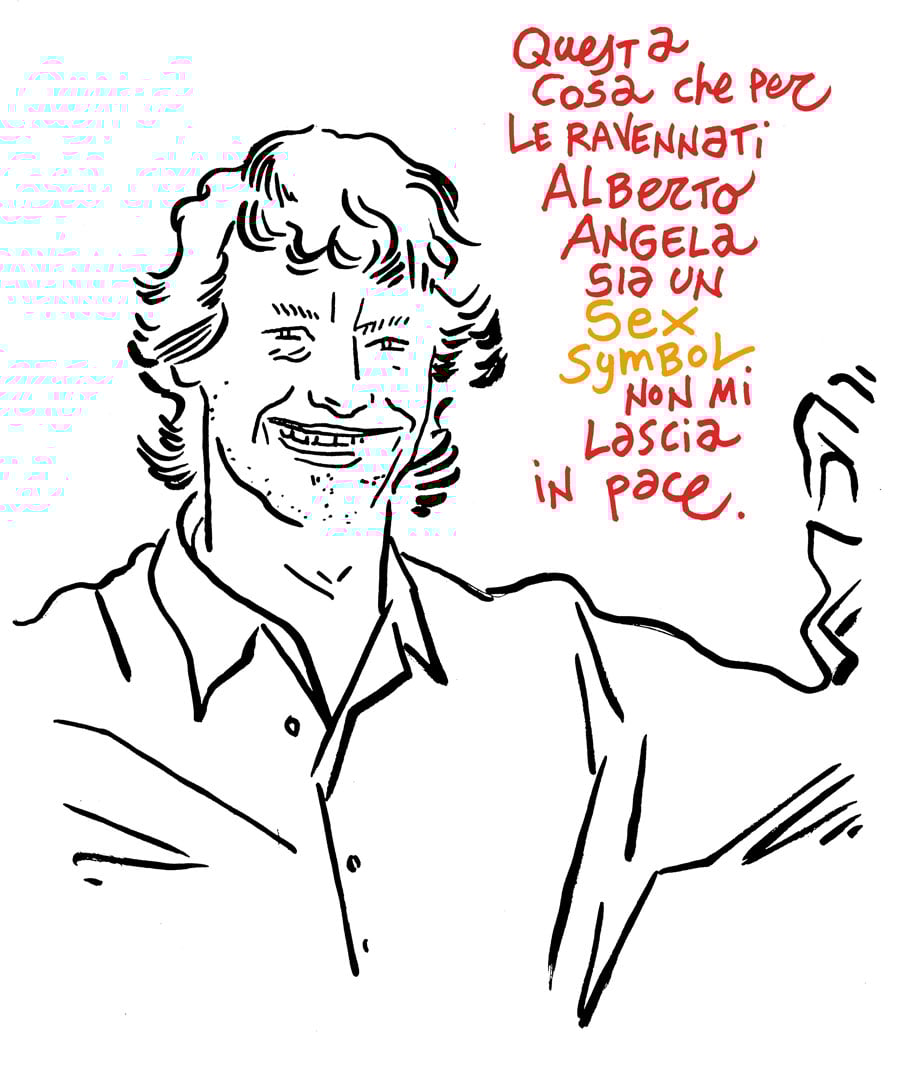 Questa
cosa che per
le ravennati
Alberto
Angela
sia un
sex
symbol
non mi
lascia
in pace.